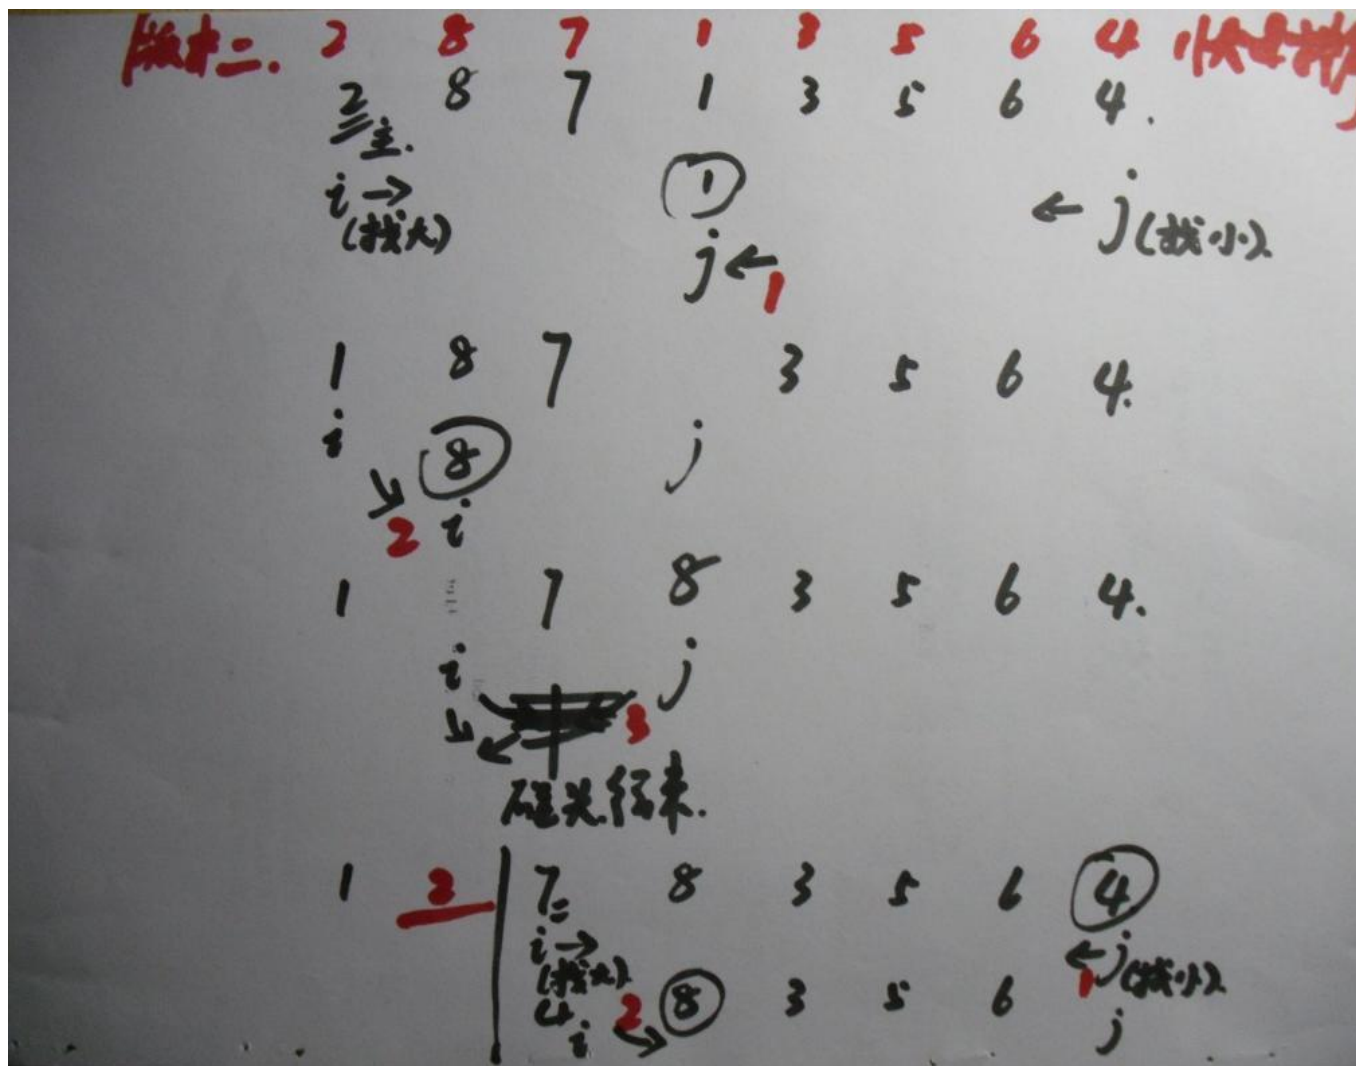 版本二. 2 8 7 1 3 5 6 4
2 8 7 1 3 5 6 4.
主.
i → ① ← j (找小)
(找大) j ← 1
1 8 7 3 5 6 4.
i ⑧ j
↘ 2 i
1 7 8 3 5 6 4.
i j
3
碰头.结束.
1 2 7 8 3 5 6 ④
i → ← j (找小)
(找大) 1
4 2 ⑧ 3 5 6
i j